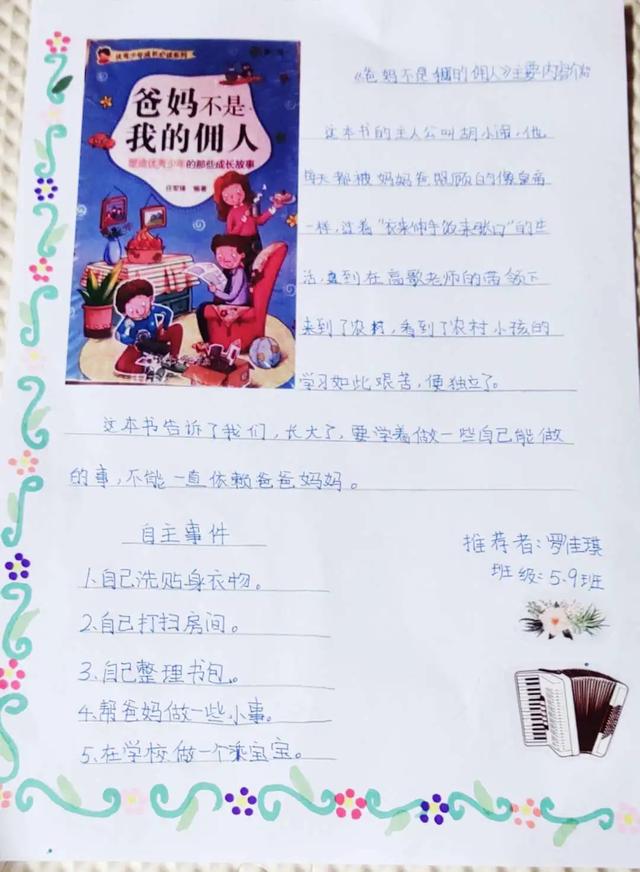 优秀少年成长必读系列
爸妈不是
我的佣人
塑造优秀少年的那些成长故事
编著
《爸妈不是我的佣人》主要内容介绍
这本书的主人公叫胡小闹，他
每天都被妈妈爸照顾的像皇帝
一样，过着“衣来伸手饭来张口”的生
活，直到在高歌老师的带领下
来到了农村，看到了农村小孩的
学习如此艰苦，便独立了。
这本书告诉了我们，长大了，要学着做一些自己能做
的事，不能一直依赖爸爸妈妈。
自主事件
1.自己洗贴身衣物。
2.自己打扫房间。
3.自己整理书包。
4.帮爸妈做一些小事。
5.在学校做一个乖宝宝。
推荐者：罗佳琪
班级：5.9班